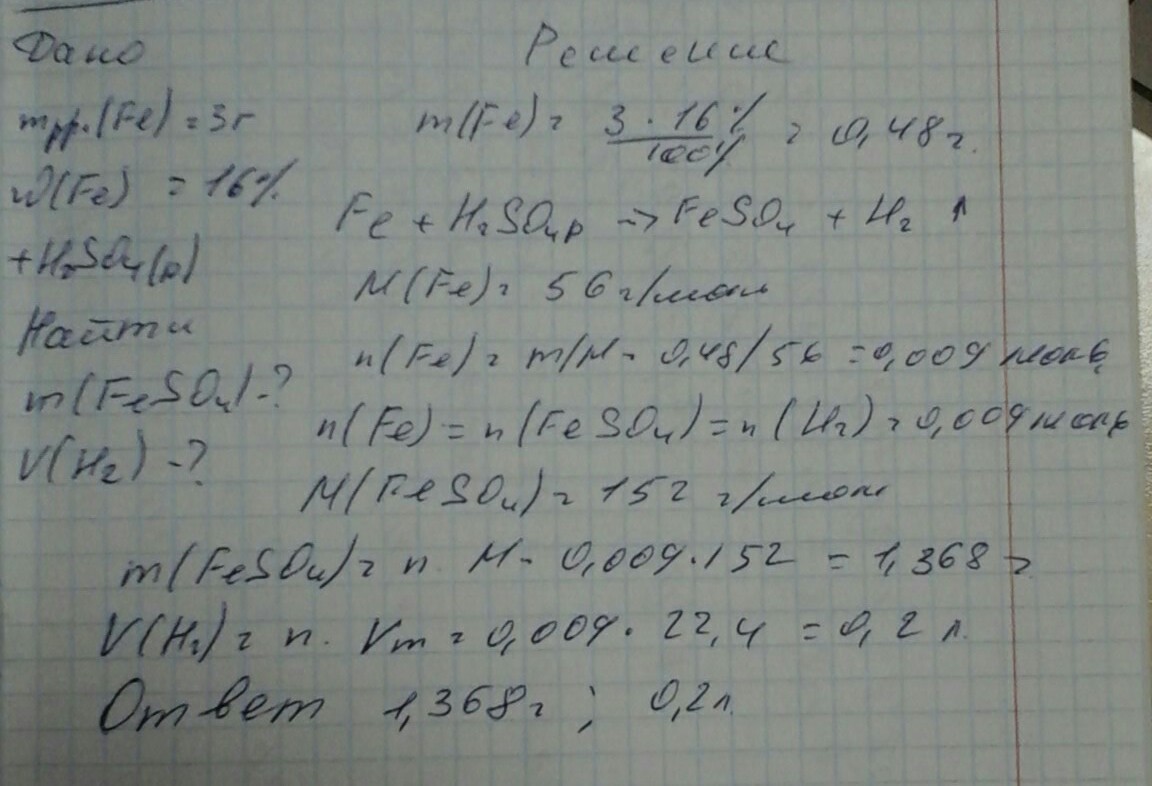 Дано
mрр.(Fe) = 3г
ω(Fe) = 16%
+H₂SO₄(р)
Найти
m(FeSO₄)-?
V(H₂)-?
Решение
m(Fe) = 3 · 16% / 100% = 0,48г.
Fe + H₂SO₄р → FeSO₄ + H₂ ↑
M(Fe) = 56 г/моль
n(Fe) = m/M = 0,48/56 = 0,009 моль
n(Fe) = n(FeSO₄) = n(H₂) = 0,009 моль
M(FeSO₄) = 152 г/моль
m(FeSO₄) = n · M = 0,009 · 152 = 1,368 г
V(H₂) = n · Vm = 0,009 · 22,4 = 0,2 л.
Ответ 1,368г ; 0,2л.